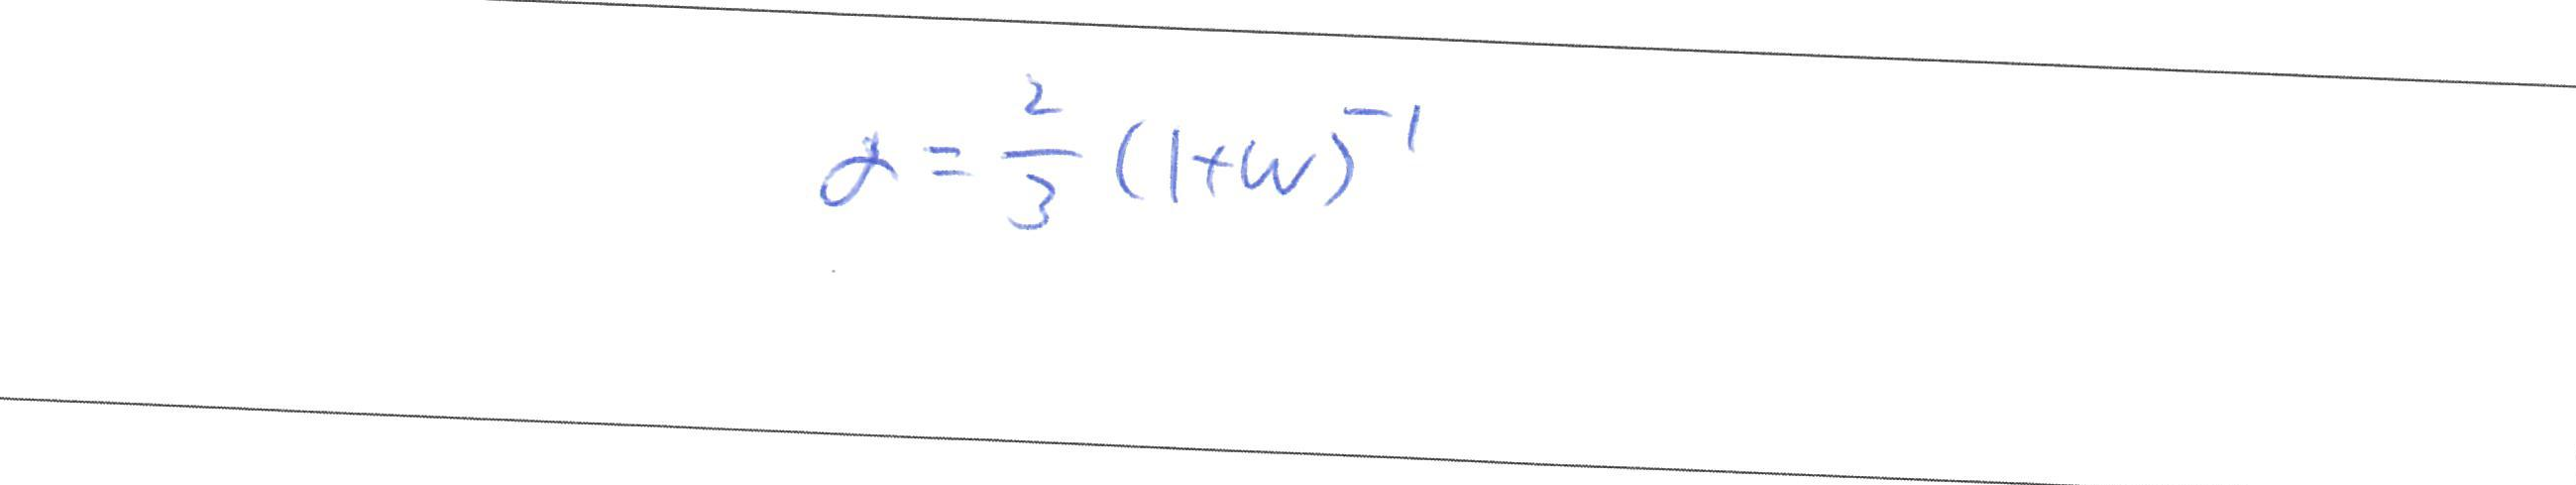 α = \frac{2}{3} (1+w)^{-1}